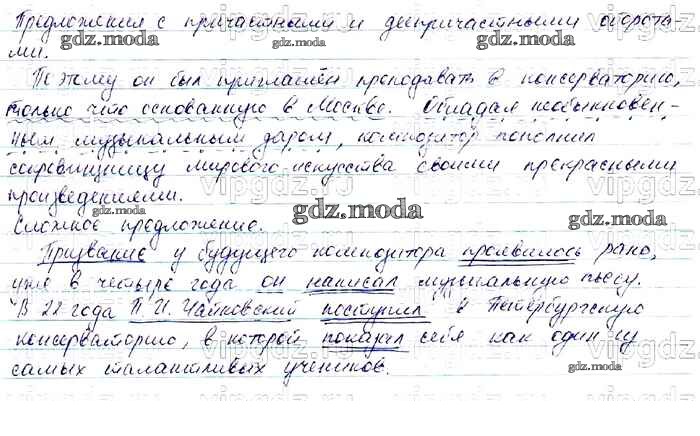 Предложения с причастными и деепричастными оборота-
ми.
Поэтому он был приглашён преподавать в консерваторию,
только что основанную в Москве. Обладая необыкновен-
ным музыкальным даром, композитор пополнил
сокровищницу мирового искусства своими прекрасными
произведениями.
Сложное предложение.
Призвание у будущего композитора проявилось рано,
уже в четыре года он написал музыкальную пьесу.
В 22 года П. И. Чайковский поступил в Петербургскую
консерваторию, в которой показал себя как один из
самых талантливых учеников.